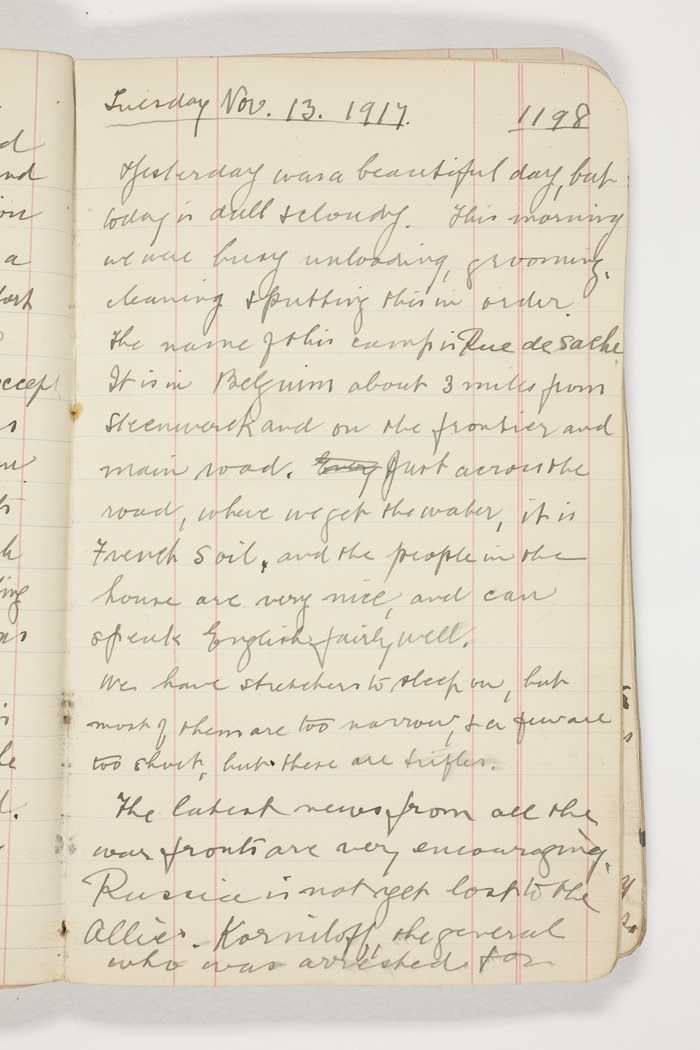 Tuesday Nov. 13. 1917. 1198
Yesterday was a beautiful day, but
today is dull & cloudy. This morning
we were busy unloading, grooming,
cleaning & putting this in order.
The name of this camp is Rue de Sache.
It is in Belgium about 3 miles from
Steenwerck and on the frontier and
main road. Just across the
road, where we get the water, it is
French soil, and the people in the
house are very nice, and can
speak English fairly well.
We have stretchers to sleep on, but
most of them are too narrow, & a few are
too short, but these are trifles.
The latest news from all the
war fronts are very encouraging.
Russia is not yet lost to the
Allies. Korniloff, the general
who was arrested for